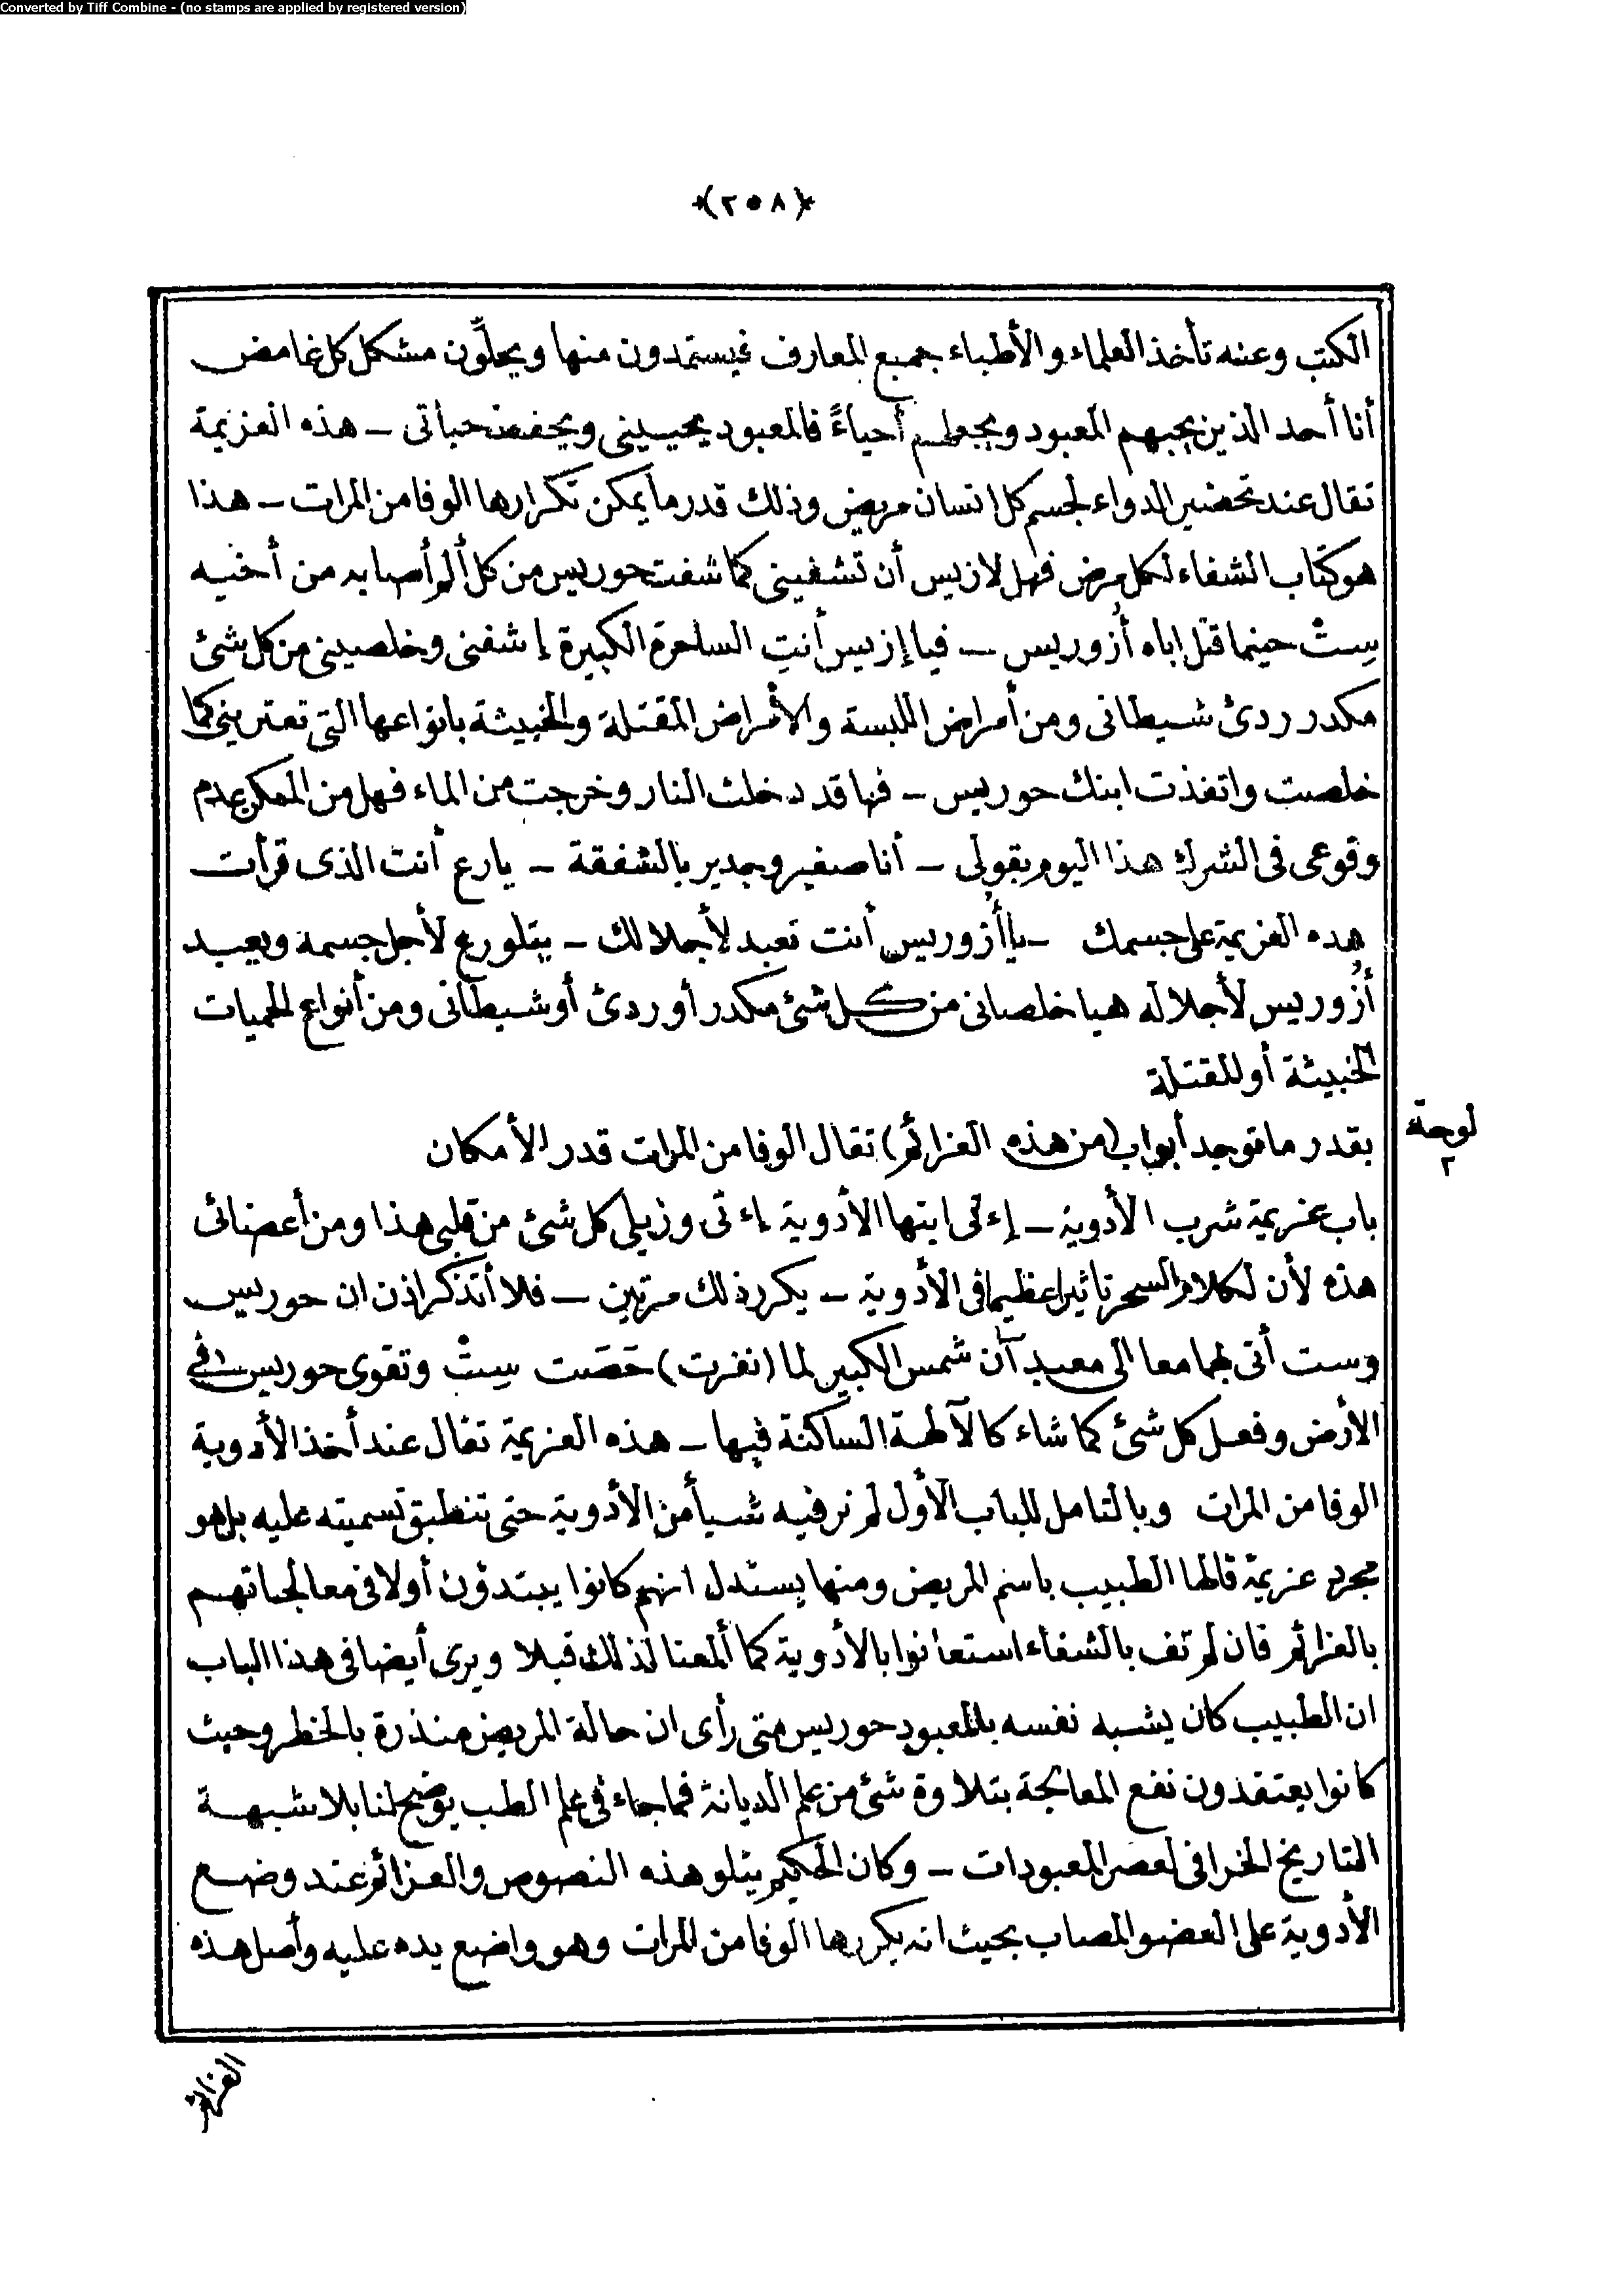 Converted by Tiff Combine - (no stamps are applied by registered version)
﴿٢٥٨﴾
الكتب وعنه تأخذ العلماء والأطباء جميع المعارف فيستمدون منها ويحلّون مشكل كل غامض
أنا أحد الذين يحبهم المعبود ويجعلهم أحياءً فالمعبود يحييني ويحفظ حياتى – هذه العزيمة
تقال عند تحضير الدواء لجسم كل انسان مريض وذلك قدر ما يمكن تكرارها الوفا من المرات – هذا
هو كتاب الشفاء لكل مرض فهل لازيس أن تشفينى كما شفت حوريس من كل ألم أصابه من أخيه
سِتْ حينما قتل اباه أُزوريس – فيا إزيس أنتِ الساحرة الكبيرة إشفنى وخلصينى من كل شئ
مكدر ردئ شيطانى ومن أمراض اللبسة والأمراض المقتلة والخبيثة بانواعها التى تعترينى كما
خلصت وانقذت ابنك حوريس – فها قد دخلت النار وخرجت من الماء فهل من الممكن عدم
وقوعى فى الشرك هذا اليوم بقولى – أنا صغير وجدير بالشفقة – يارع أنت الذى قرأت
هده العزيمة على جسمك – يا أُزوريس أنت تعبد لأجلالك – يتلو رع لأجل جسمه ويعبد
أُزوريس لأجلاله هيا خلصانى من كل شئ مكدر أو ردئ أو شيطانى ومن أنواع الحميات
الخبيثة أو المقتلة
لوحة
٢
بقدر ما توجد أبواب (من هذه العزائم) تقال الوفا من المرات قدر الأمكان
باب عزيمة شرب الأدوية – إءتى ايتها الأدوية إءتى وزيلى كل شئ من قلبى هذا ومن أعضائى
هذه لأن لكلام السحر تاثيرا عظيما فى الأدوية – يكرر ذلك مرتين – فلا أتذكر اذن ان حوريس
وست أتى بهما معا الى معبد آن شمس الكبير لما (نفرت) خَصَت سِتْ وتقوى حوريس فى
الأرض وفعل كل شئ كما شاء كالآلهة الساكنة فيها – هذه العزيمة تقال عند أخذ الأدوية
الوفا من المرات وبالتامل للباب الأول لم نر فيه شيأ من الأدوية حتى تنطبق تسميته عليه بل هو
مجرد عزيمة قالها الطبيب باسم المريض ومنها يستدل انهم كانوا يبتدؤن أولا فى معالجاتهم
بالعزائم فان لم تف بالشفاء استعانوا بالأدوية كما ألمعنا لذلك قبلا ويرى أيضا فى هذا الباب
ان الطبيب كان يشبه نفسه بالمعبود حوريس متى رأى ان حالة المريض منذرة بالخطر وحيث
كانوا يعتقدون نفع المعالجة بتلاوة شئ من علم الديانة فما جاء فى علم الطب يوضح لنا بلا شبهة
التاريخ الخرافى لعصر المعبودات – وكان الحكيم يتلو هذه النصوص والعزائم عند وضع
الأدوية على العضو المصاب بحيث انه يكررها الوفا من المرات وهو واضع يده عليه وأصل هذه
العزائم